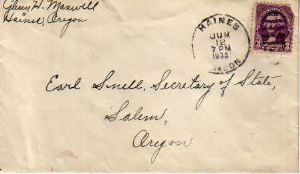 Glenn H. Maxwell
Haines, Oregon
HAINES
JUN
12
7 PM
OREGON
Earl Snell, Secretary of State,
Salem,
Oregon